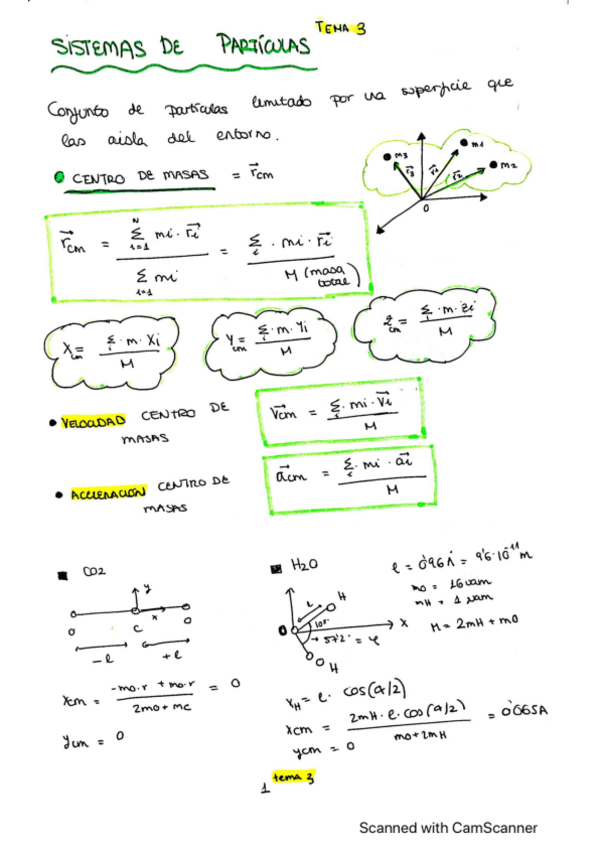 TEMA 3
SISTEMAS DE PARTÍCULAS
Conjunto de partículas limitado por una superficie que
las aisla del entorno.
CENTRO DE MASAS = r⃗cm
m3 m1 m2
r⃗3 r⃗1 r⃗2
0
r⃗cm = N Σ i=1 mi · r⃗i / Σ i=1 mi = Σ i · mi · r⃗i / M (masa total)
Xcm = Σ i · m · Xi / M
Ycm = Σ i · m · Yi / M
Zcm = Σ i · m · Zi / M
VELOCIDAD CENTRO DE
MASAS
v⃗cm = Σ i · mi · v⃗i / M
ACELERACIÓN CENTRO DE
MASAS
a⃗cm = Σ i · mi · a⃗i / M
CO2
y
x
O C O
-l +l
xcm = -mo·r + mo·r / 2mo + mc = 0
ycm = 0
H2O
l = 0'96 Å = 9'6·10⁻¹¹ m
mo = 16 uam
mH = 1 uam
M = 2mH + mO
L H
O X
H
xH = l · cos(α/2)
xcm = 2mH · l · cos(α/2) / mo + 2mH = 0'065A
ycm = 0
tema 3
1
Scanned with CamScanner